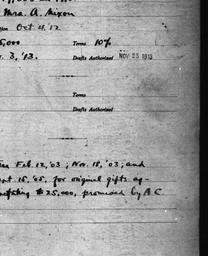 Mrs. A. Nixon
Oct 4, '12
5,000 Terms 10%
. 3, '13. Drafts Authorized NOV 25 1913
Terms
Drafts Authorized
Feb. 12, '03; Nov. 18, '03; and
15, '05, for original gifts ag-
$25,000, promised by A C